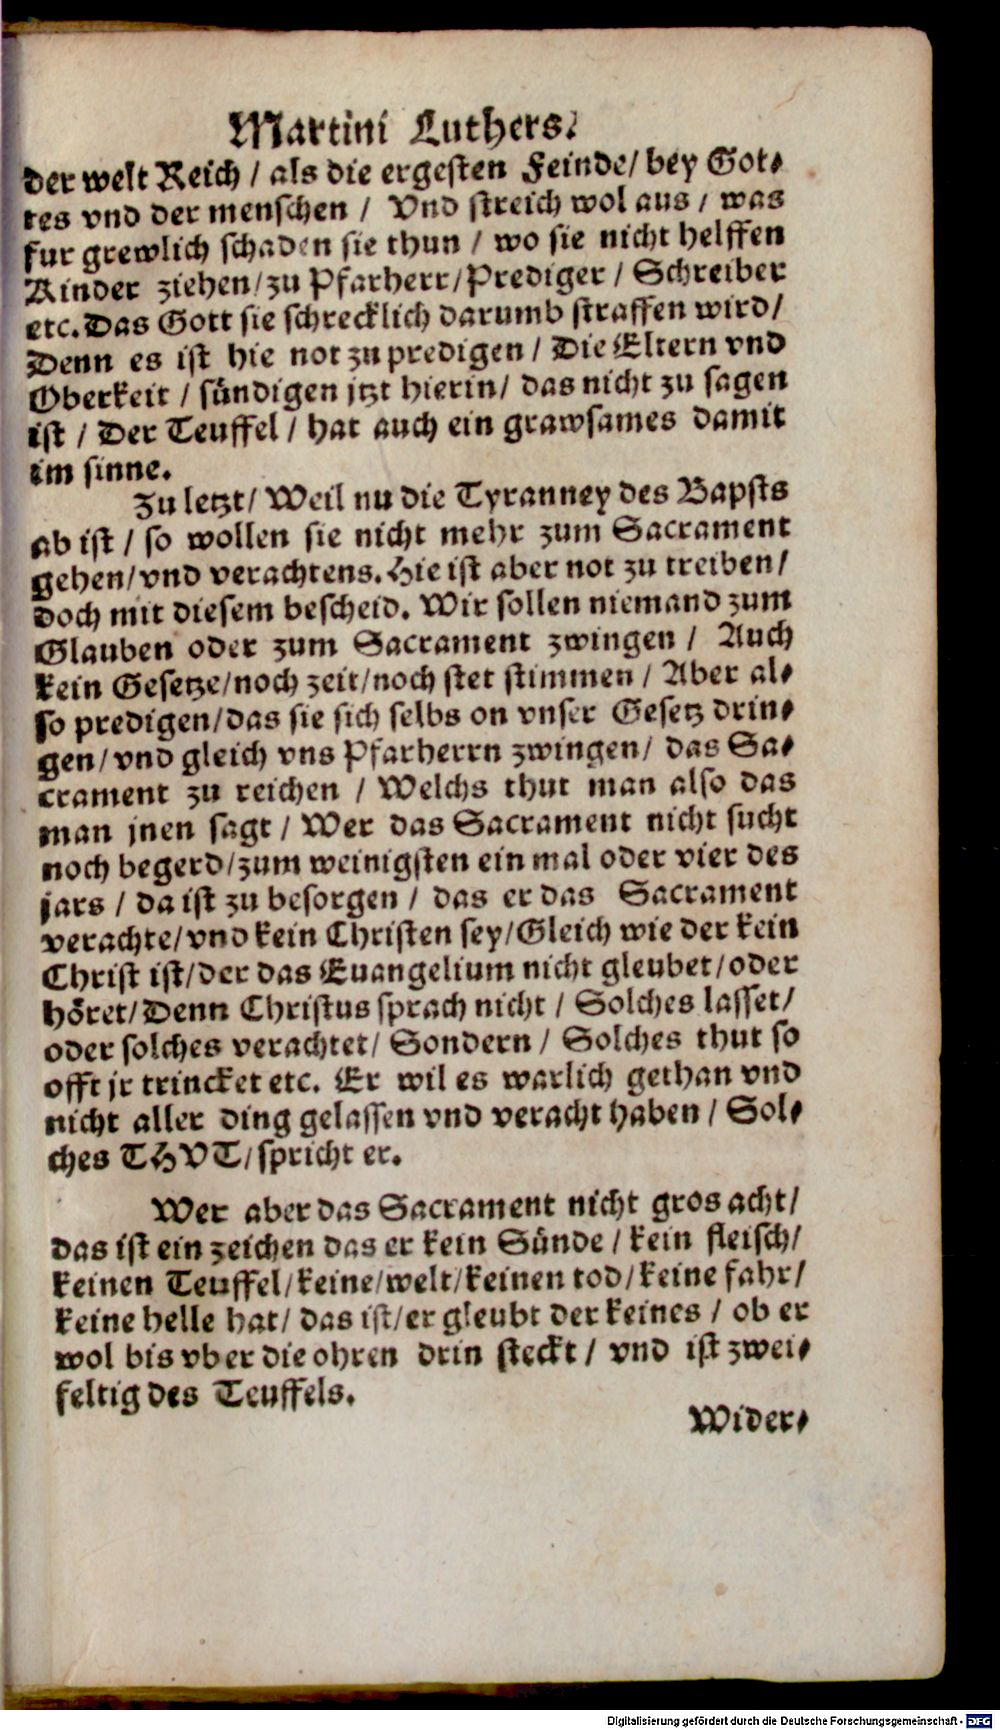 Martini Luthers.
der welt Reich / als die ergesten Feinde / bey Got⸗
tes vnd der menschen / Vnd streich wol aus / was
fur grewlich schaden sie thun / wo sie nicht helffen
Kinder ziehen / zu Pfarherr / Prediger / Schreiber
etc. Das Gott sie schrecklich darumb straffen wird /
Denn es ist hie not zu predigen / Die Eltern vnd
Oberkeit / sündigen jtzt hierin / das nicht zu sagen
ist / Der Teuffel / hat auch ein grawsames damit
im sinne.
Zu letzt / Weil nu die Tyranney des Bapsts
ab ist / so wollen sie nicht mehr zum Sacrament
gehen / vnd verachtens. Hie ist aber not zu treiben /
doch mit diesem bescheid. Wir sollen niemand zum
Glauben oder zum Sacrament zwingen / Auch
kein Gesetze / noch zeit / noch stet stimmen / Aber al⸗
so predigen / das sie sich selbs on vnser Gesetz drin⸗
gen / vnd gleich vns Pfarherrn zwingen / das Sa⸗
crament zu reichen / Welchs thut man also das
man jnen sagt / Wer das Sacrament nicht sucht
noch begerd / zum weinigsten ein mal oder vier des
jars / da ist zu besorgen / das er das Sacrament
verachte / vnd kein Christen sey / Gleich wie der kein
Christ ist / der das Euangelium nicht gleubet / oder
höret / Denn Christus sprach nicht / Solches lasset /
oder solches verachtet / Sondern / Solches thut so
offt jr trincket etc. Er wil es warlich gethan vnd
nicht aller ding gelassen vnd veracht haben / Sol⸗
ches THVT / spricht er.
Wer aber das Sacrament nicht gros acht /
das ist ein zeichen das er kein Sünde / kein fleisch /
keinen Teuffel / keine / welt / keinen tod / keine fahr /
keine helle hat / das ist / er gleubt der keines / ob er
wol bis vber die ohren drin steckt / vnd ist zwei⸗
feltig des Teuffels.
Wider⸗
Digitalisierung gefördert durch die Deutsche Forschungsgemeinschaft - DFG